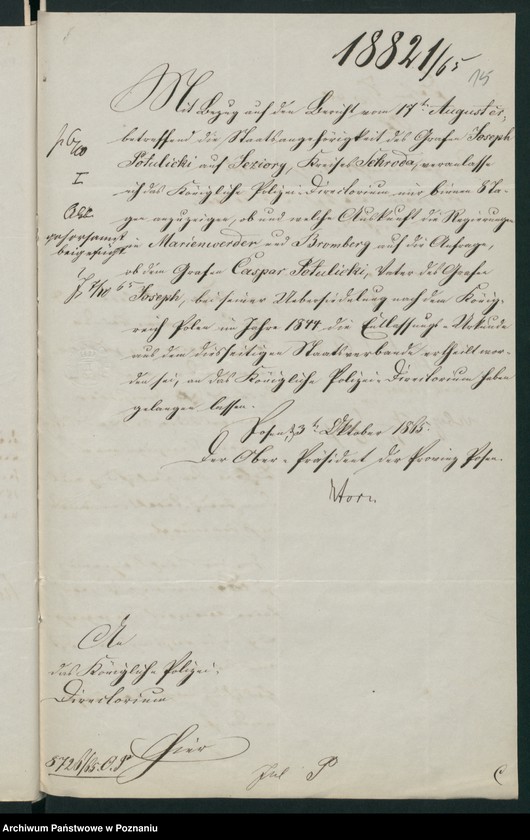 18821/65
15
Mit Bezug auf den Bericht vom 17ten August cr.
betreffend die Staatsangehörigkeit des Grafen Joseph
Potulicki auf Jeziory, Kreises Schroda, veranlasse
ich das Königliche Polizei-Directorium, mir binnen 8 Ta-
gen anzuzeigen, ob und welche Auskunft die Regierungen
in Marienwerder und Bromberg auf die Anfrage,
ob dem Grafen Caspar Potulicki, Vater des Grafen
Joseph, bei seiner Uebersiedelung nach dem König-
reich Polen im Jahre 1844 die Entlassungs-Urkunde
aus dem diesseitigen Staatsverbande ertheilt wor-
den sei, an das Königliche Polizei-Directorium haben
gelangen lassen.
Posen, 3ten Oktober 1865.
Der Ober-Präsident der Provinz Posen.
Horn
I
gehorsamst
beigefügt
An
das Königliche Polizei-
Directorium
Hier
5726/65. O.P.
Archiwum Państwowe w Poznaniu